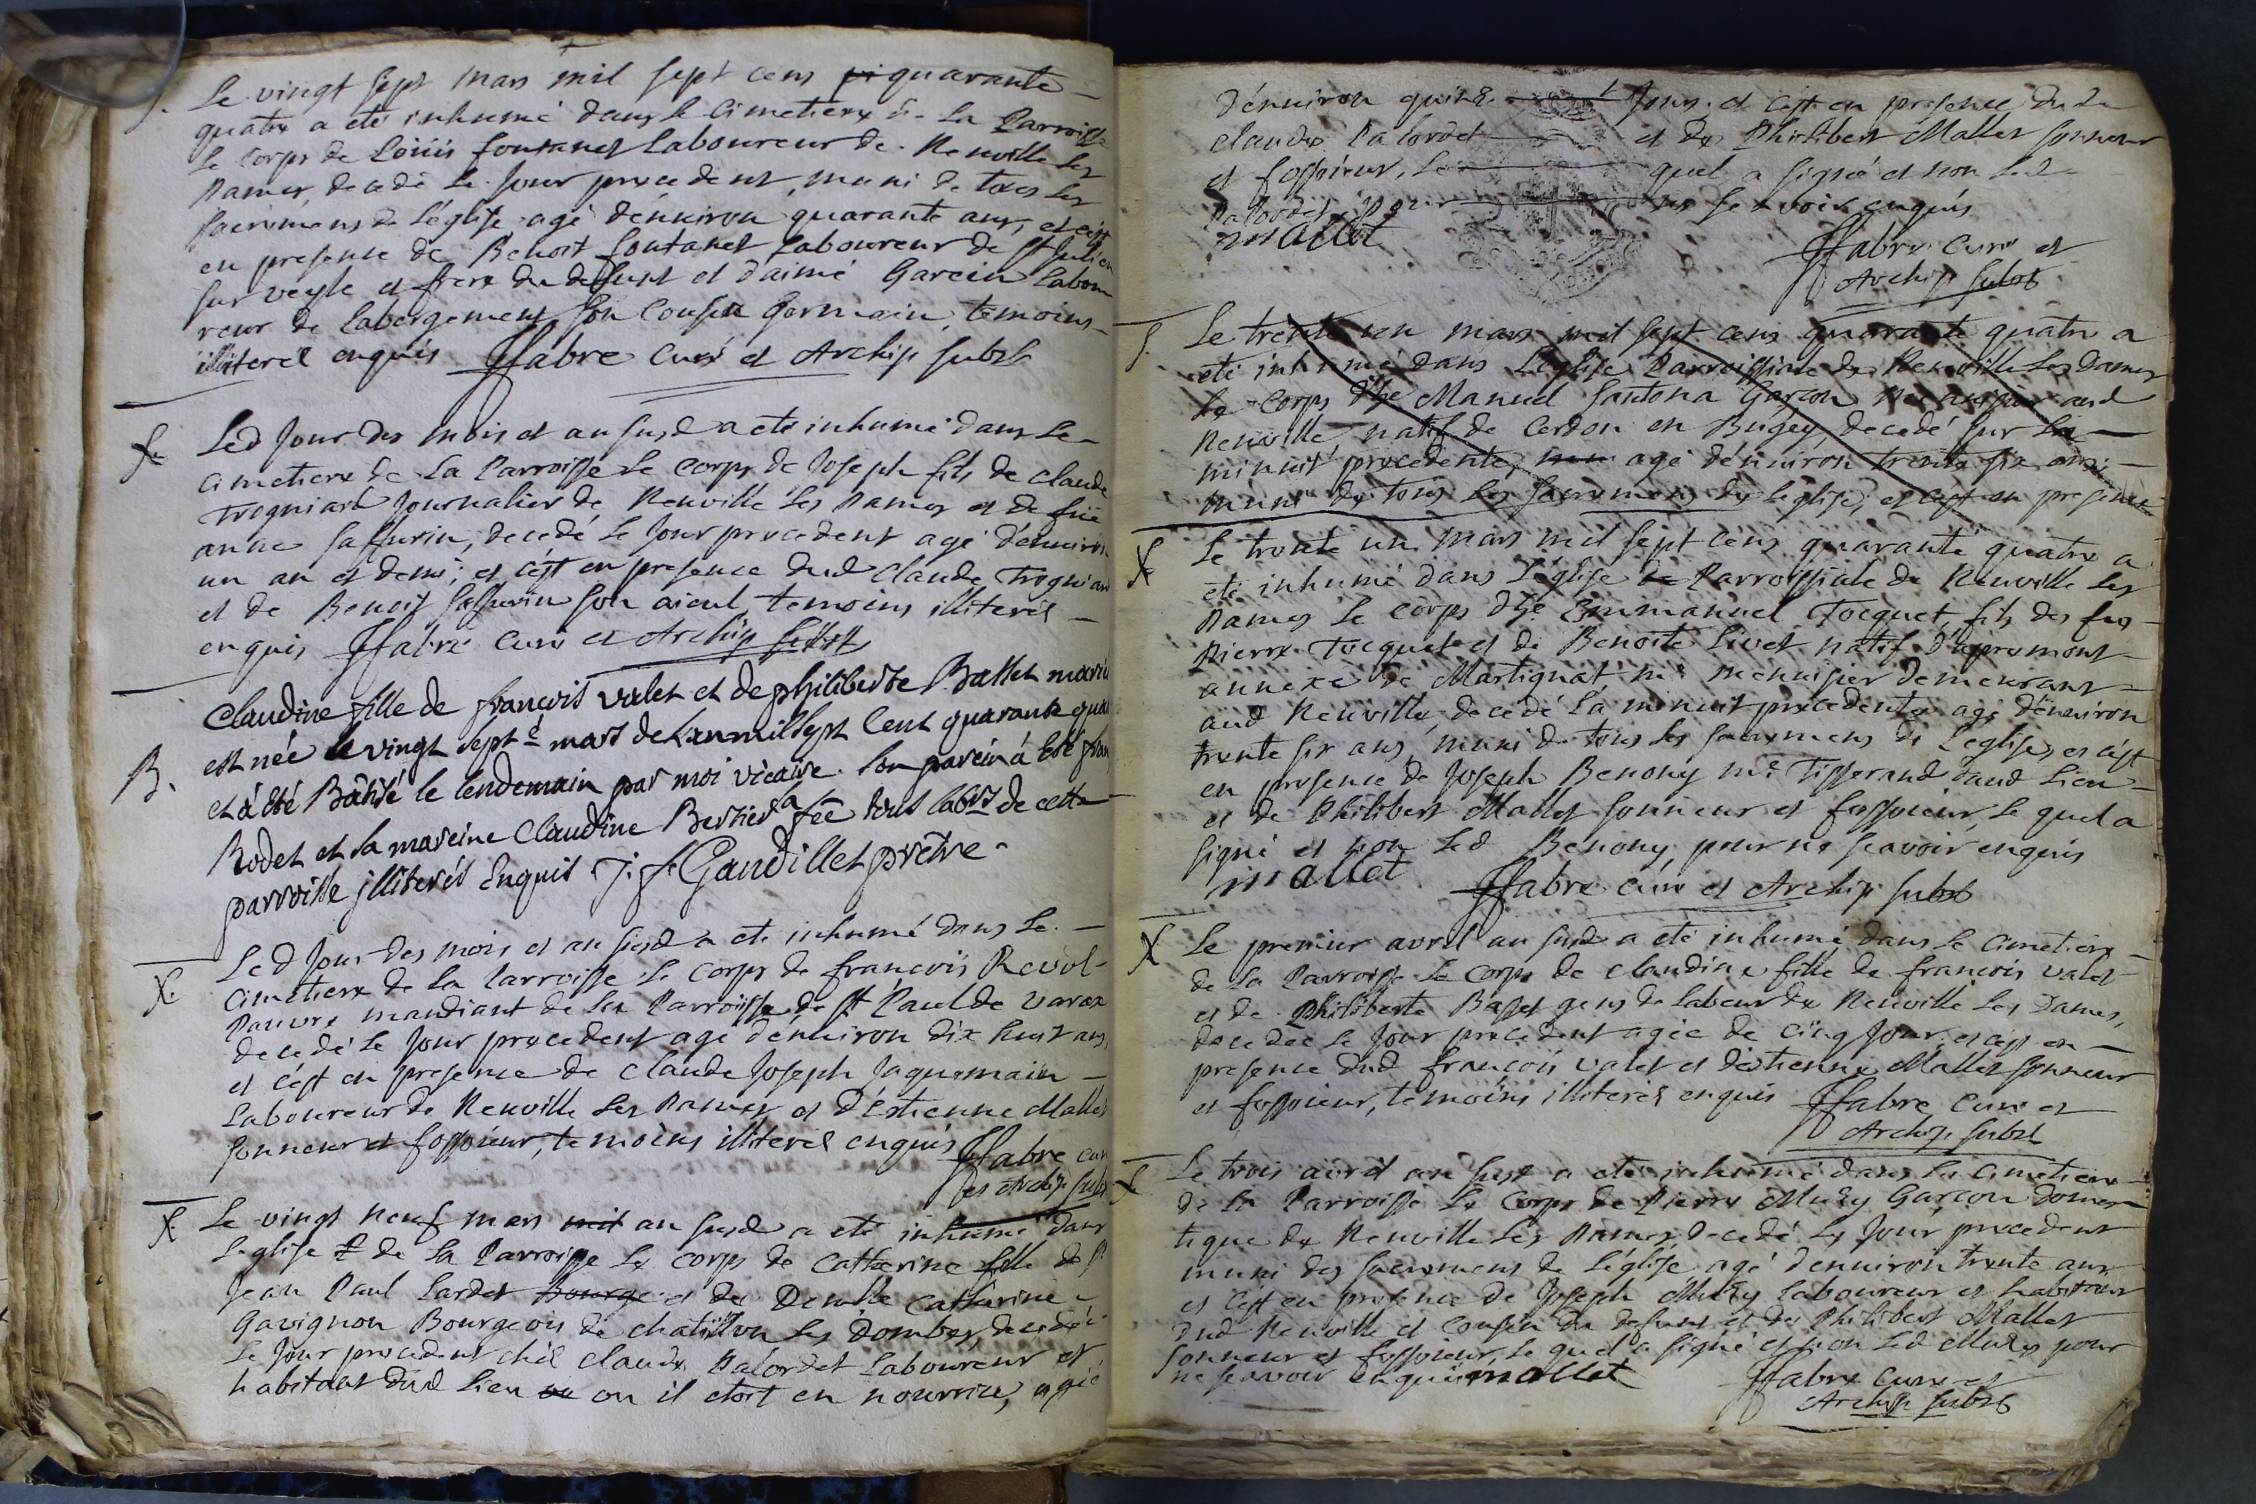 Le vingt sept mars mil sept cens quarante
quatre a eté inhumé dans le cimetiere de La Parroisse
le Corps de Loüis fontanel Laboureur de Neuville les
Dames, decedé le jour precedent, muni de tous les
sacremens de l'église agé d'énuiron quarante ans, et c'est
en presence de Benoit fontanel Laboureur de st Julien
sur veyle et frere du deffunt et d'aimé Garcin Labou
reur de Labergement son Cousin Germain, temoins
illiterés enquis ffabre Curé et Archip subst
S.
Led jour des mois et an susd a eté inhumé dans le
cimetiere de La Parroisse le corps de Joseph fils de claude
Trogniard Journalier de Neuville les Dames et de fuë
anne saffurin, decedé le jour precedent agé d'énuiron
un an et demi, et c'ést en presence dud claude Trogniard
et de Benoit saffurin son aieul, temoins illiterés
enquis ffabre curé et Archip subst
B.
Claudine fille de françois valet et de philiberte Basset mariés
est née le vingt sept mars de L'an mil sept Cent quarante quatre
et à été Bâtisé le lendemain par moi vicaire. son parein à été fran
Rodet et la mareine Claudine Bertier sa fẽ tous labrs de cette
parroisse illiterés Enquis J. f. Gaudillet prêtre
S.
Led jour des mois et an susd a eté inhumé dans le
Cimetiere de La Parroisse le corps de françois Revol
Pauvre mandiant de la Parroisse de st Paul de Varax
decedé le jour precedent agé d'énuiron dix huit ans,
et c'ést en presence de Claude Joseph Jaquemain
Laboureur de Neuville les Dames et d'Estienne Mallet
sonneur et fossoieur, temoins illiterés enquis ffabre cur
et Archip subst
S.
Le vingt neuf mars mil an susd a eté inhumé dans
L'église de La Parroisse le corps de Catherine fille de sr
Jean Paul Lardet Bourge et de Demlle Catherine
Gavignon Bourgeois de chatillon les Dombes, decedée
le jour precedent chés claude Palordet Laboureur et
habitant dud Lieu ou il etoit en nourrice, agée
d'énuiron quinze jours. et c'est en presence dud
claude Palordet et de Philibert Mallet sonneur
et fossoieur, le quel a signé et non led
Palordet pour ne scavoir enquis
mallet ffabre Curé et
Archip subst
S.
Le trente un mars mil sept cens quarante quatre a
eté inhumé dans L'église Parroissiale de Neuville les Dames
Le Corps d'he Manuel santona Garçon aud
Neuville natif de Cerdon en Bugey, decedé sur la
minuit precedente, agé d'énuiron trente six ans,
muni de tous les sacremens de L'église, et c'est en presence
S.
Le trente un mars mil sept cens quarante quatre a
eté inhumé dans L'église Parroissiale de Neuville les
Dames le corps d'he Emmanuel Tocquet, fils des fus
Pierre Tocquet et de Benoite Livet natif d'Apremont
annexe de Martignat me menuisier demeurant
aud Neuville, decedé la minuit precedente agé d'énuiron
trente six ans, muni de tous les sacremens de L'église, et c'est
en presence de Joseph Benony me Tisserand dud Lieu
et de Philibert Mallet sonneur et fossoieur, le quel a
signé et non led Benony, pour ne scavoir enquis
mallet ffabre Curé et Archip subst
S.
Le premier avril an susd a eté inhumé dans le cimetiere
de La Parroisse le corps de claudine fille de francois valet
et de Philiberte Basset gens de Labeur de Neuville les Dames,
decedée le jour precedent agée de cinq jours. et c'est en
presence dud françois valet et d'éstienne Mallet sonneur
et fossoieur, temoins illiterés enquis ffabre Curé et
Archip subst
S.
Le trois avril an susd a eté inhumé dans le cimetiere
de La Parroisse le Corps de Pierre Mury Garçon domes
tique de Neuville les Dames decedé le jour precedent
muni des sacremens de L'église agé d'énuiron trente ans,
et c'est en presence de Joseph Mury Laboureur et habitant
dud Neuville et cousin du defunt et de Philibert Mallet
sonneur et fossoieur, le quel a signé et non led Mury pour
ne scavoir enquis mallet ffabre Curé et
Archip subst